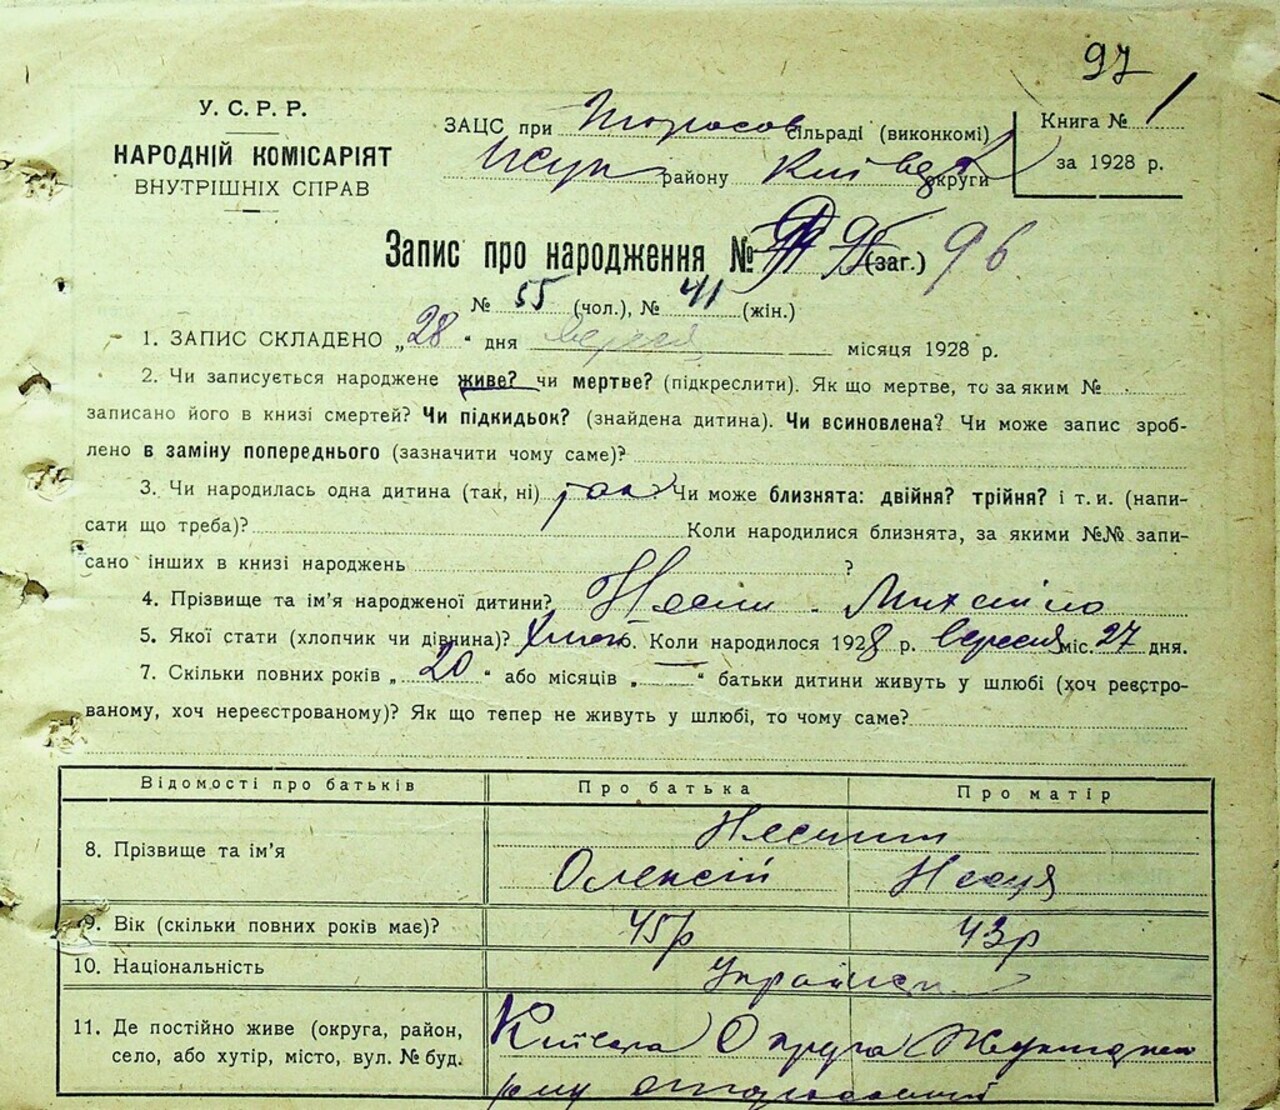 97
У. С. Р. Р.
НАРОДНІЙ КОМІСАРІЯТ
ВНУТРІШНІХ СПРАВ
ЗАЦС при сільраді (виконкомі)
району Київськ округи
Книга № 1
за 1928 р.
Запис про народження № 95 (заг.) 96
№ 55 (чол.), № 41 (жін.)
1. ЗАПИС СКЛАДЕНО „28“ дня вересня місяця 1928 р.
2. Чи записується народжене живе? чи мертве? (підкреслити). Як що мертве, то за яким №
записано його в книзі смертей? Чи підкидьок? (знайдена дитина). Чи всиновлена? Чи може запис зроб-
лено в заміну попереднього (зазначити чому саме)?
3. Чи народилась одна дитина (так, ні) так Чи може близнята: двійня? трійня? і т. и. (напи-
сати що треба)? Коли народилися близнята, за якими №№ запи-
сано інших в книзі народжень ?
4. Прізвище та ім’я народженої дитини?
5. Якої стати (хлопчик чи дівчина)? 6. Коли народилося 1928 р. вересня міс. 27 дня.
7. Скільки повних років „20“ або місяців „—“ батьки дитини живуть у шлюбі (хоч реєстро-
ваному, хоч нереєстрованому)? Як що тепер не живуть у шлюбі, то чому саме?
Відомості про батьків Про батька Про матір
8. Прізвище та ім’я
Олексій
9. Вік (скільки повних років має)? 45р 43р
10. Національність Українці
11. Де постійно живе (округа, район, Київська Округа
село, або хутір, місто, вул. № буд.